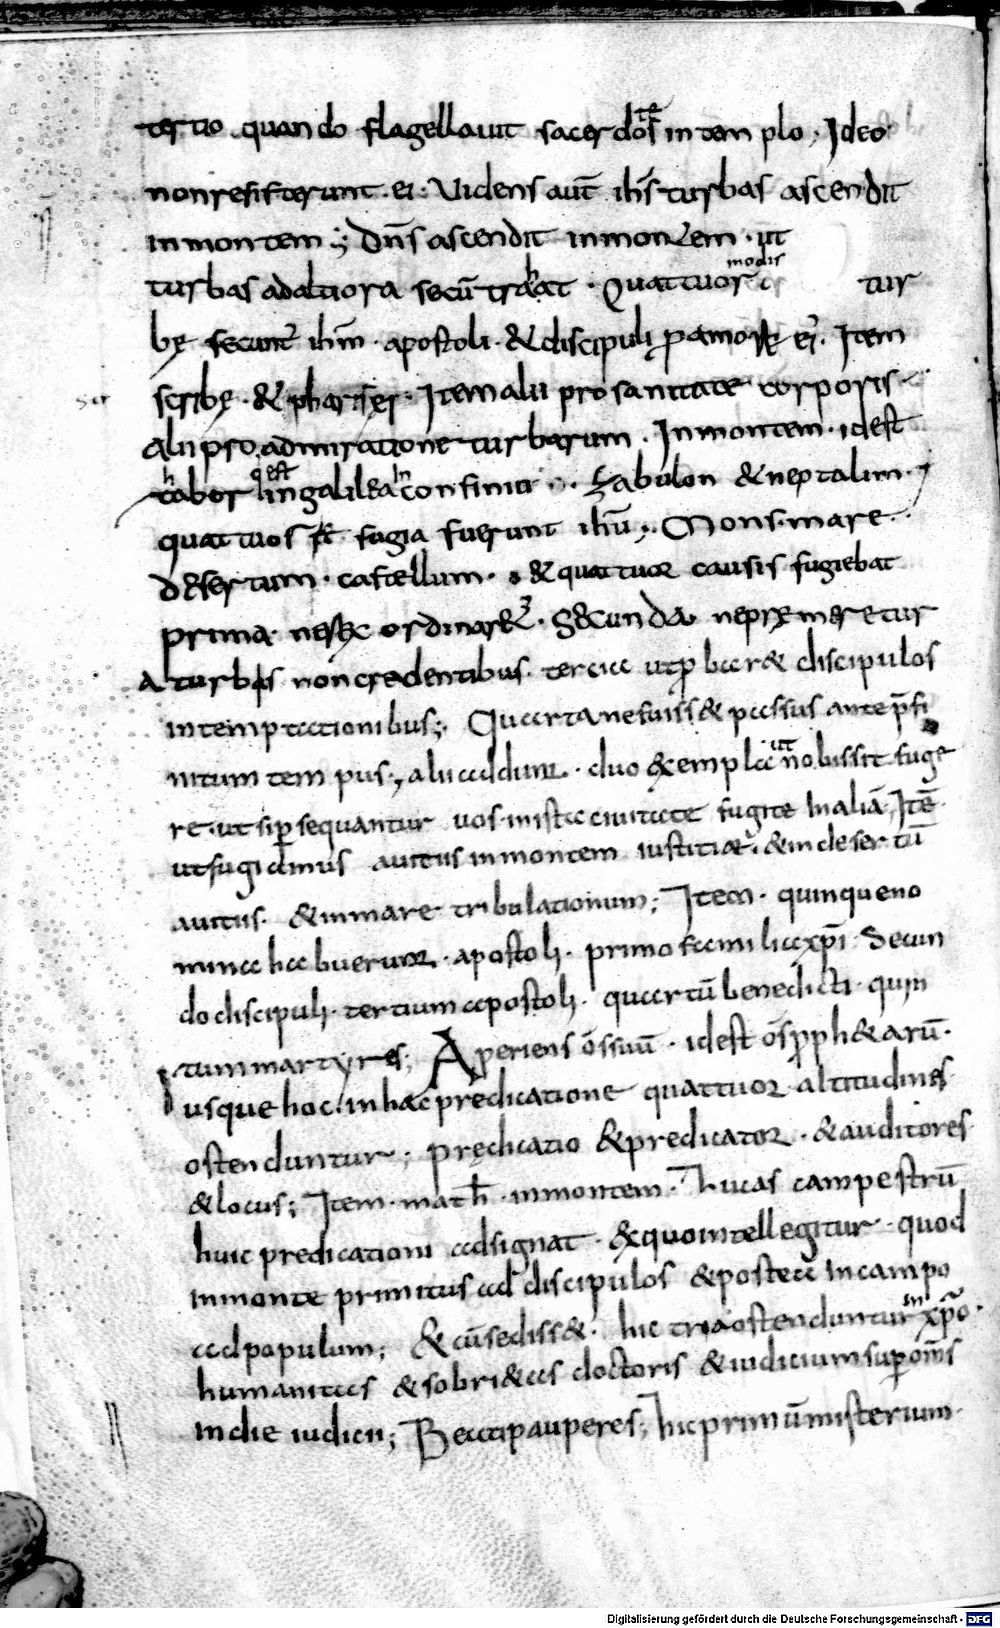 tertio quando flagellauit sacerdōs in templo. Ideo
non resisterunt. ei. Uidens aut̄ ih̄s turbas ascendit
in montem; Dn̄s ascendit in montem. ut
turbas ad altiora secū trahat. Quattuor modis tur
bę ih̄m. apostoli. & discipuli ei. Item
scribę. & pharisęi. Item alii pro sanitate corporis
Alii pro admiratione turbarum. In montem. idest
thabor q̄ est in galilea confiniū Zabulon & neptalim.
quattuor fugia fuerunt ih̄u. Mons. mare.
desertum. castellum. & quattuor causis fugiebat
prima. ne ordinaret̄. Secunda ne pręmeretur
A turbis non credentibus. tercia ut ꝓbaret discipulos
in temptationibus; Quarta ne fuisset passus ante p̄fi
nitum tempus. alii addunt. duo exempla ut nobis sit fuge
re. ut si ꝑsequantur uos in ista ciuitate fugite in aliā. Itē
ut fugiamus auitus in montem iustitiae. & in desertū
auitus. & in mare tribulationum; Item. quinque no
mina habuerunt. apostoli. primo familia xp̄i Secun
do discipuli. tertium apostoli. quartū benedicti. quin
tum martyres; Aperiens ōs suū. idest ōs ꝓphetarū.
usque hoc. in hac predicatione quattuor altitudines
ostenduntur; prędicatio & predicator. & auditores
& locus; Item. math̄ in montem. Lucas campestrū
huic predicationi adsignat. ex quo intellegitur. quod
in monte primitus ad discipulos & postea in campo
ad populum; & cū sedisset. hic tria ostenduntur in xp̄o.
humanitas & sobrietas doctoris & iudicium suꝑ om̄s
in die iudicii; Beati pauperes; hic primū misterium.
Digitalisierung gefördert durch die Deutsche Forschungsgemeinschaft - DFG